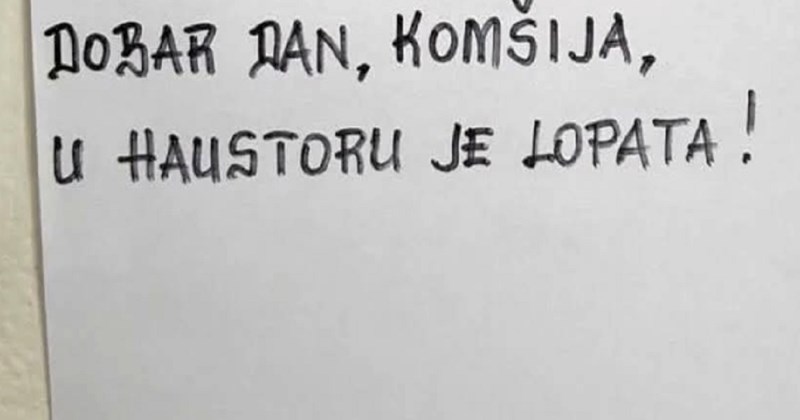 DOBAR DAN, KOMŠIJA,
U HAUSTORU JE LOPATA!